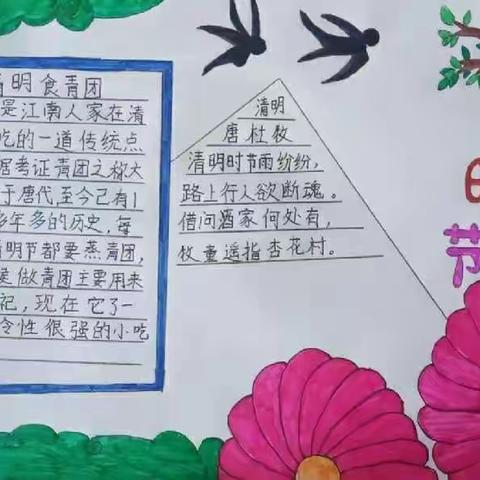 清明食青团
是江南人家在清
吃的一道传统点
据考证青团之称大
于唐代,至今已有1
多年多的历史,每
清明节都要蒸青团,
候做青团主要用来
祀,现在它了一
令性很强的小吃
清明
唐杜牧
清明时节雨纷纷,
路上行人欲断魂。
借问酒家何处有,
牧童遥指杏花村。
节